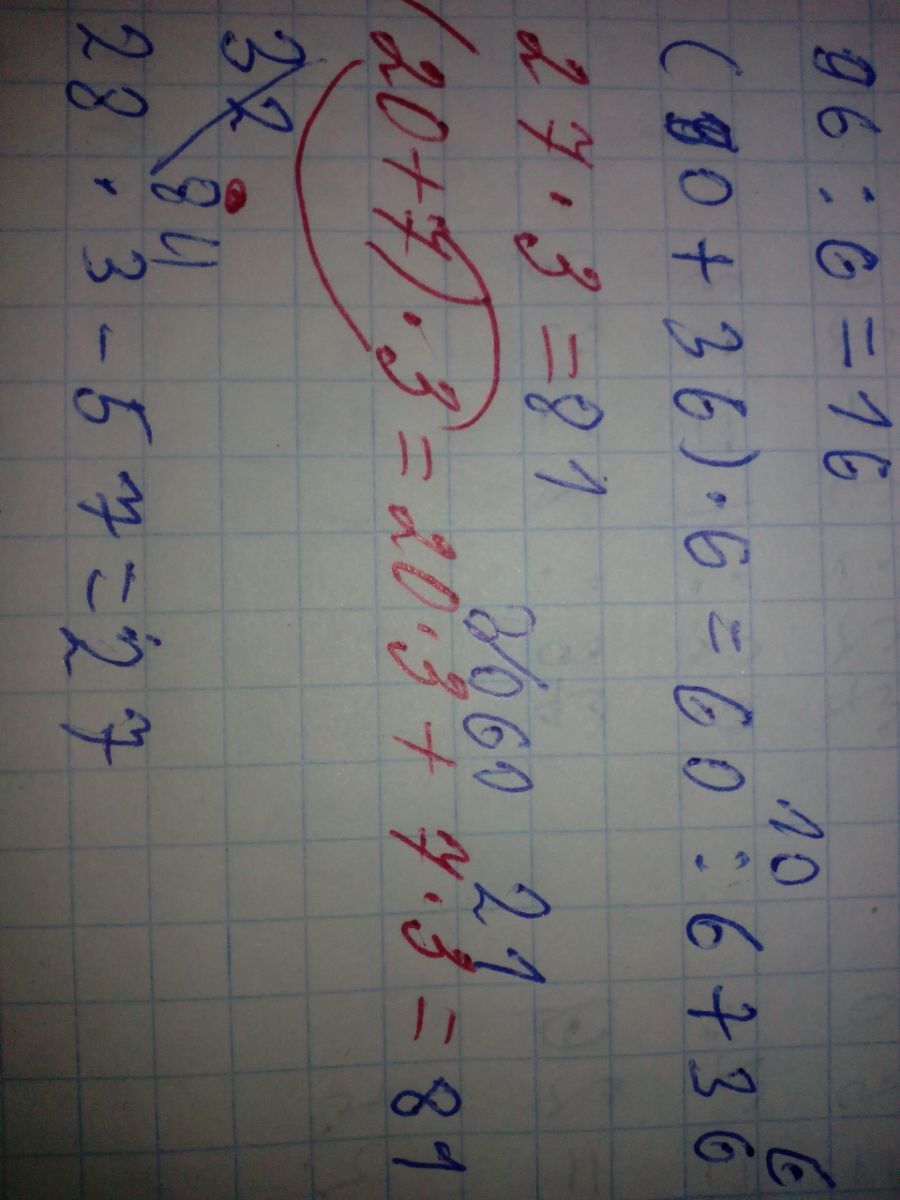 96 : 6 = 16
10 6
(60 + 36) · 6 = 60 : 6 + 36
27 · 3 = 81
60 21
(20+7) · 3 = 20·3 + 7·3 = 81
32
84
28 · 3 - 57 = 27